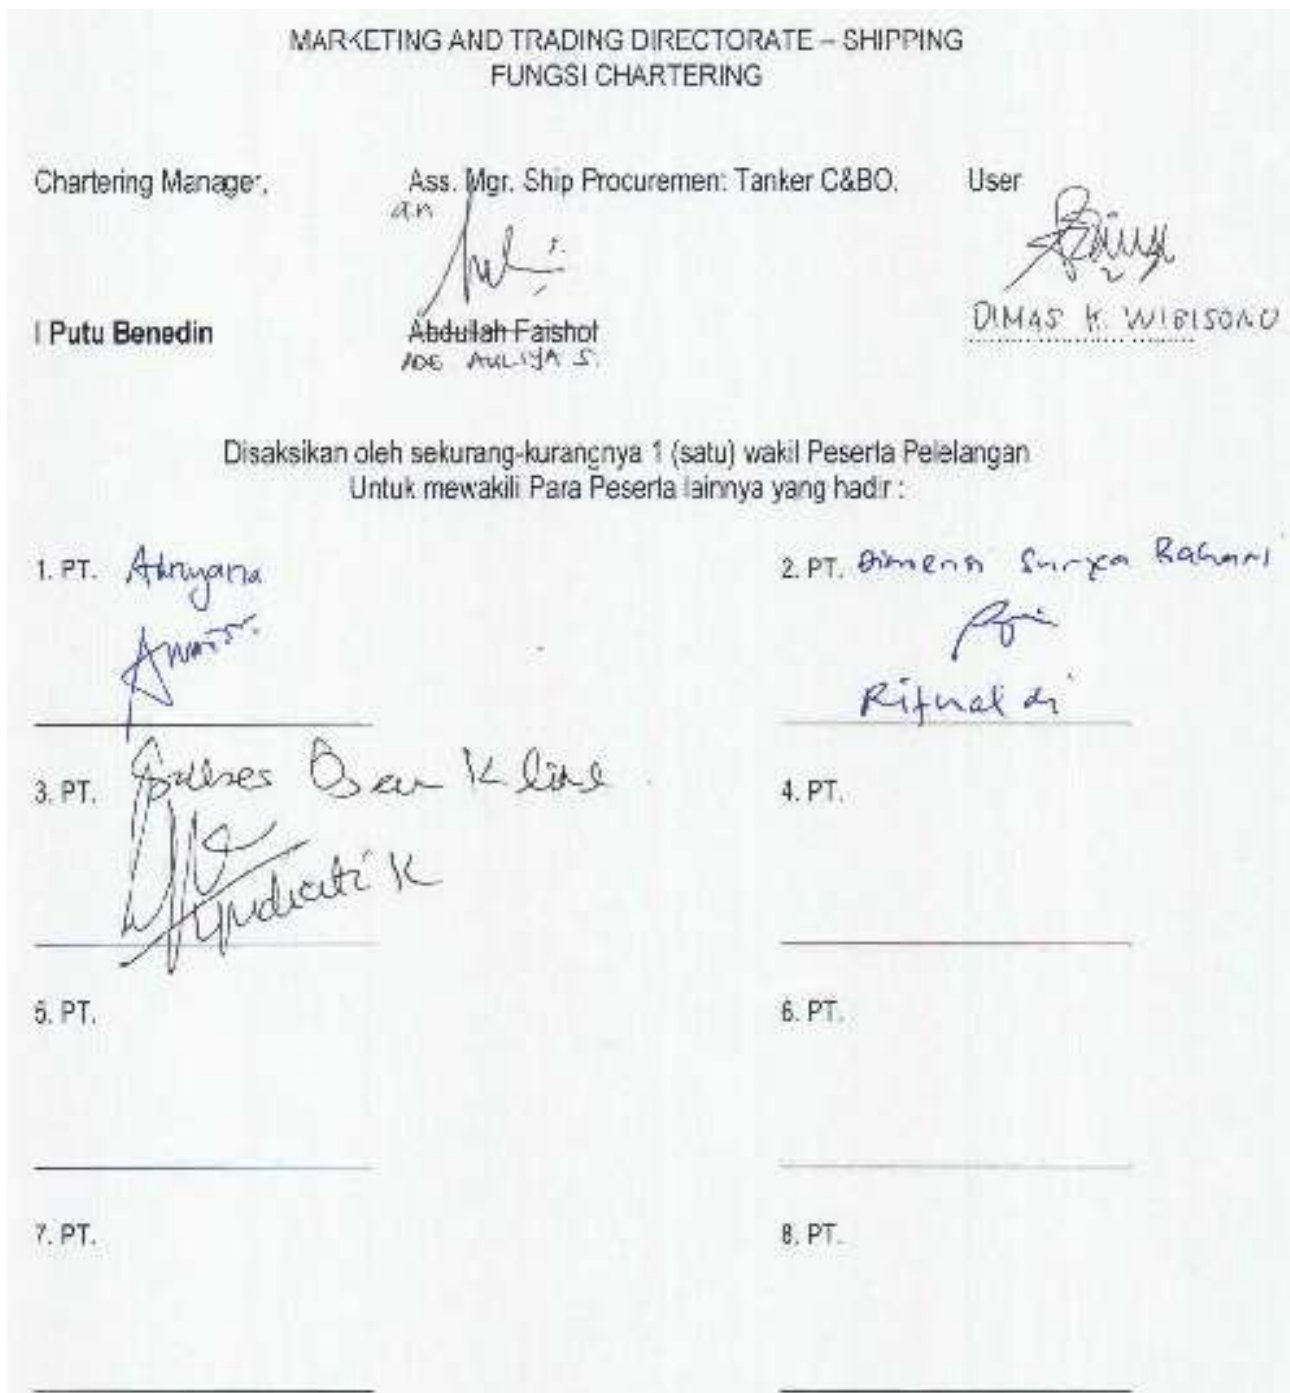 MARKETING AND TRADING DIRECTORATE – SHIPPING
FUNGSI CHARTERING
Chartering Manager, Ass. Mgr. Ship Procurement Tanker C&BO, User
an
I Putu Benedin Abdullah Faishol DIMAS K. WIBISONO
ADE AULIYA S.
Disaksikan oleh sekurang-kurangnya 1 (satu) wakil Peserta Pelelangan
Untuk mewakili Para Peserta lainnya yang hadir :
1. PT. 2. PT. Dimensi Surya Bahari
Rifnaldi
3. PT. 4. PT.
5. PT. 6. PT.
7. PT. 8. PT.